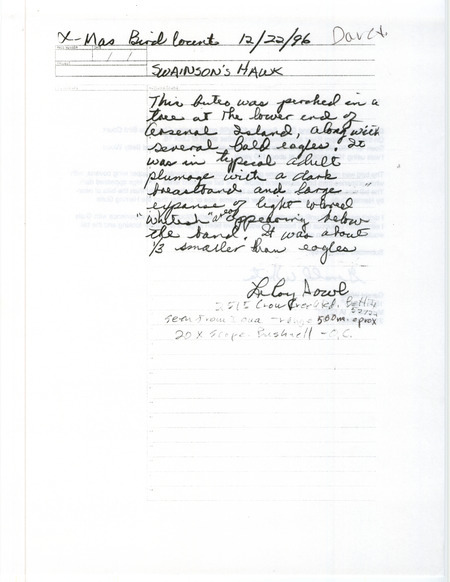 X-Mas Bird Count 12/22/96
SWAINSON'S HAWK
This buteo was perched in a
tree at The lower end of
Arsenal Island, along with
several bald eagles. It
was in typical adult
plumage with a dark
breastband and large
expanse of light colored
"whitish" area appearing below
the band. It was about
1/3 smaller than eagles
2515 Crow Creek Rd. Bett
52722
seen from Iowa - range 500m. aprox
20X Scope. Bushnell -